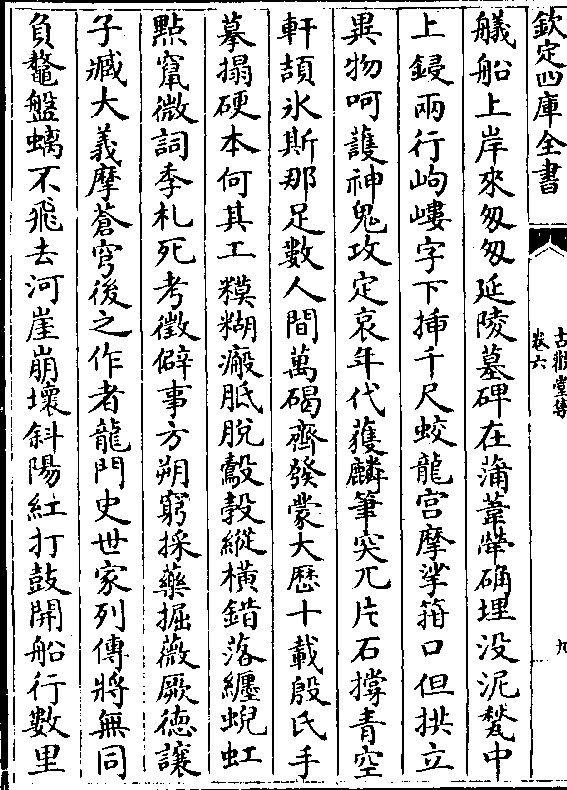 欽定四庫全書
古歡堂集
卷六
九
艤船上岸來匆匆延陵墓碑在蒲葦犖确埋没泥甃中
上鋟兩行岣嶁字下揷千尺蛟龍宫摩挲箝口但拱立
異物呵護神鬼攻定哀年代獲麟筆突兀片石撐青空
軒頡氷斯那足數人間萬碣齊發蒙大厯十載殷氏手
摹搨硬本何其工糢糊瘢胝脱鸞㲉縱横錯落纒蜺虹
點竄微詞季札死考徵僻事方朔窮採藥掘薇厥徳讓
子臧大義摩蒼穹後之作者龍門史世家列傳將無同
負鼇盤螭不飛去河崖崩壞斜陽紅打鼓開船行數里